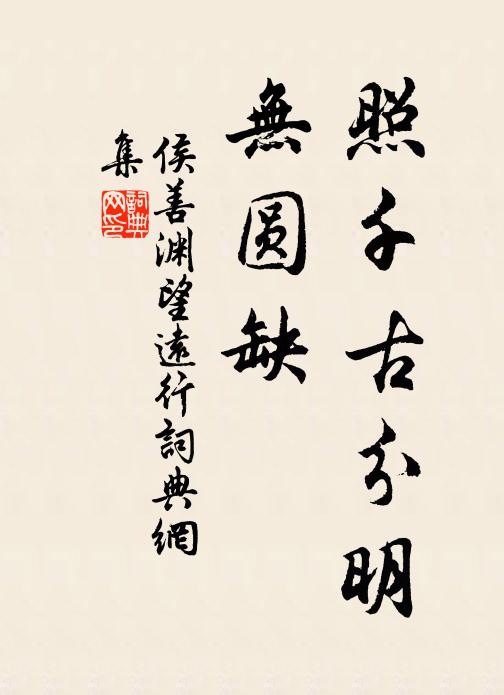 照千古分明
無圆缺
侯善渊望遠行詞典網
集
詞典网印